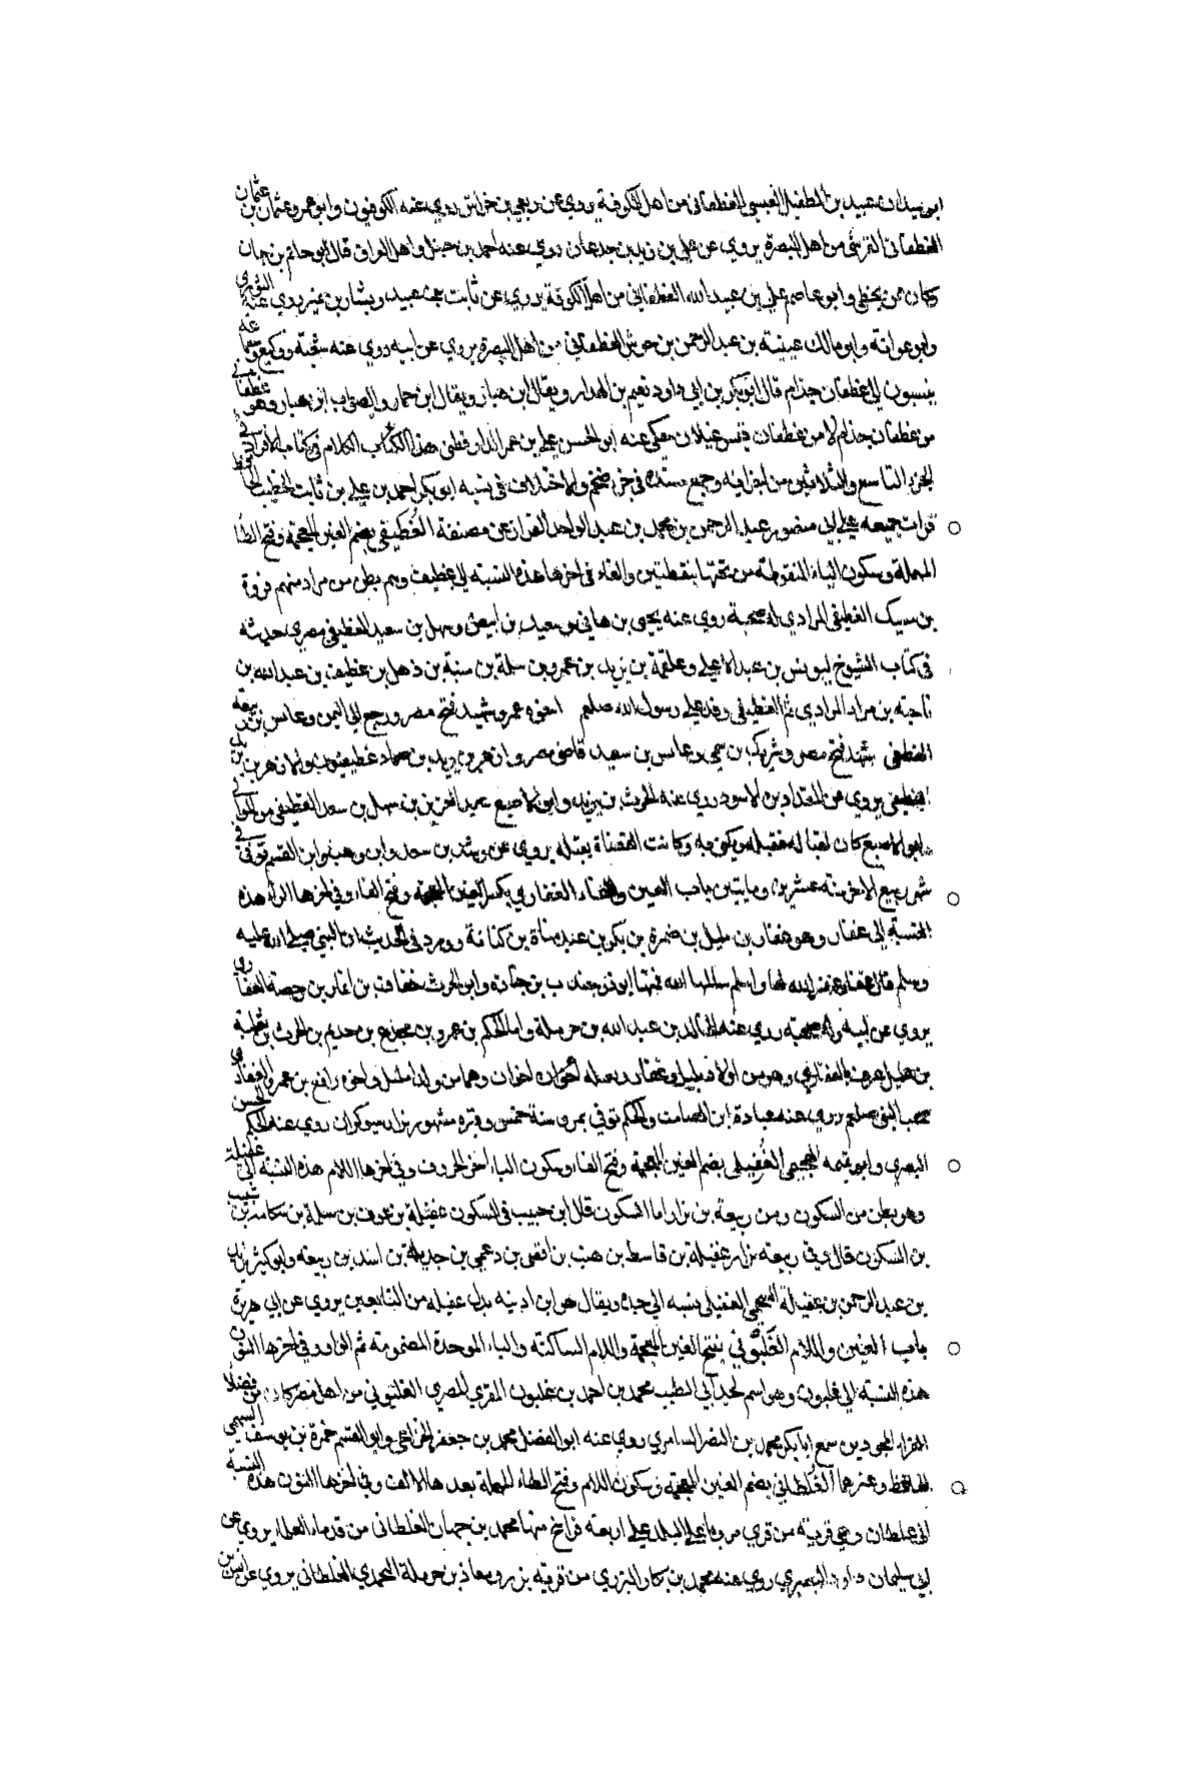 ابو سيدان عبيد بن الطفيل العبسي الغطفاني من اهل الكوفة يروي عن ربعي بن خراش روي عنه الكوفيون وابو عمرو عثمان بن عثمان
الغطفاني القرشي من اهل البصرة يروي عن علي بن زيد بن جدعان روي عنه احمد بن حنبل واهل العراق قال ابو حاتم بن حبان
كان ممن يخطي وابو عاصم علي بن عبيد الله الغطفاني من اهل الكوفة يروي عن ثابت بن عبيد وبشار بن نمير روي عنه الثوري
وابو عوانة وابو مالك عيينة بن عبد الرحمن بن جوشن الغطفاني من اهل البصرة يروي عن ابيه روي عنه شعبة ووكيع
ينسبون الي غطفان جذام قال ابو بكر بن ابي داود نعيم بن الهدار ويقال ابن هبار ويقال ابن حمار والصواب ابن هبار وهو غطفاني
من غطفان جذام لا من غطفان قيس غيلان حكي عنه ابو الحسن علي بن عمر الدارقطني هذا الكلام في كتاب الافراد في
الجزء التاسع والثلاثين من اجزائه وجمع مسنده في جزء ضخم والاختلاف في نسبه ابو بكر احمد بن علي بن ثابت الخطيب الحافظ
قرات جميعه علي ابي منصور عبد الرحمن بن محمد بن عبد الواحد القزاز عن مصنفه الغُطيفي بضم الغين المعجمة وفتح الطا
المهملة وسكون الياء المنقوطة من تحتها بنقطتين والفاء في اخرها هذه النسبة الي غطيف وهم بطن من مراد منهم فروة
بن مسيك الغطيفي المرادي له صحبة روي عنه يحيي بن هاني وسعيد بن ابيض وسهل بن سعيد الغطيفي مصري حديثه
في كتاب الشيوخ ليونس بن عبد الاعلي وعلقمة بن يزيد بن عمرو بن سلمة بن منبه بن ذهل بن غطيف بن عبد الله بن
ناجية بن مراد المرادي ثم الغطيفي وفد علي رسول الله صلعم اخوه عمرو شهيد فتح مصر ورجع الي اليمن وعابس بن ربيعة
الغطيفي شهد فتح مصر وشريك بن سمي وعابس بن سعيد قاضي مصر
الغطيفي يروي عن المقداد بن الاسود روي عنه الحرث بن يزيد وابو الاصبغ عبد العزيز بن سهل بن سعد الغطيفي من الموالي
ابو الاصبغ كان يروي عن رشدين بن سعد وابن وهب وابن القسم توفي في
شهر ربيع الاخر سنة عشرين ومايتين باب الغين والفاء الغفاري بكسر الغين المعجمة وفتح الفاء وفي اخرها الراء هذه
النسبة الي غفار وهو غفار بن مليل بن ضمرة بن بكر بن عبد مناة بن كنانة وورد في الحديث ان النبي صلي الله عليه
وسلم قال غفار غفر الله لها واسلم سالمها الله فمنها ابو ذر جندب بن جنادة وابو الحرث خفاف بن ايماء بن رحضة الغفاري
يروي عن ابيه وله صحبة روي عنه خالد بن عبد الله بن حرملة واما الحكم بن عمرو بن مجدع بن حذيم بن الحرث بن ثعلبة
بن مليل عرف بالغفاري وهو من اولاد مليل وغفار ونعيلة اخوان وهما من ولد مليل واخوه رافع بن عمرو الغفاري
صحب النبي صلعم روي عنه عبادة ابن الصامت والحكم توفي بمرو سنة خمسين وقبره مشهور يزار روي عنه الحكم الحسن
البصري وابو تميمة الهجيمي الغُفيلي بضم الغين المعجمة وفتح الفاء وسكون الياء اخر الحروف وفي اخرها اللام هذه النسبة الي غفيلة
وهو بطن من السكون ومن ربيعة بن نزار اما السكون قال ابن حبيب في السكون غفيلة بن عوف بن سلمة بن شكامة بن شبيب
بن السكون قال وفي ربيعة نزار غفيلة بن قاسط بن هنب بن افصي بن دعمي بن جديلة بن اسد بن ربيعة وابو كثير يزيد
بن عبد الرحمن بن غفيلة السحيمي الغفيلي ينسبه الي جده ويقال هو ابن اذينة بدل غفيلة من التابعين يروي عن ابي هريرة
باب الغين واللام الغَلبُوني بفتح الغين المعجمة واللام الساكنة والباء الموحدة المضمومة ثم الواو وفي اخرها النون
هذه النسبة الي غلبون وهو اسم لجد ابي الطيب محمد بن احمد بن غلبون المقري المصري الغلبوني من اهل مصر كان من فضلا
القراء المجودين سمع ابا بكر محمد بن النضر السامري روي عنه ابو الفضل محمد بن جعفر الخزاعي وابو القسم حمزة بن يوسف السهمي
الحافظ وغيرهما الغُلطاني بضم الغين المعجمة وسكون اللام وفتح الطاء المهملة بعدها الالف وفي اخرها النون هذه النسبة
الي غلطان وهي قرية من قري مرو باعلي البلد علي اربعة فراسخ منها محمد بن جهمان الغلطاني من قدماء العلماء يروي عن
ابي سليمان داود البصيري روي عنه محمد بن بكار البزري من قرية بزر ومعاذ بن حرملة المحمدي الغلطاني يروي عن انس بن